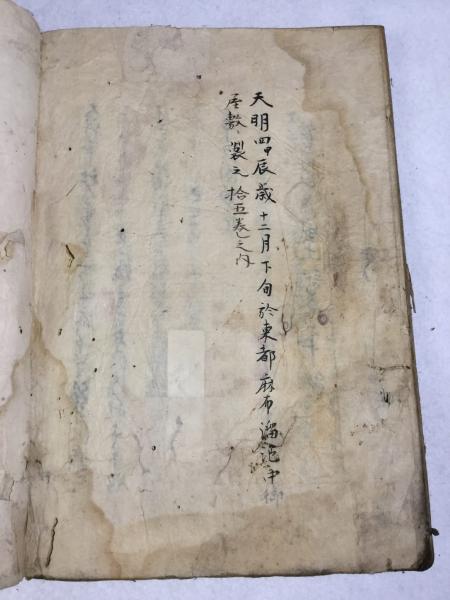 天明四甲辰歳十二月下旬於東都麻布溜池中御
屋敷製之拾五巻之内